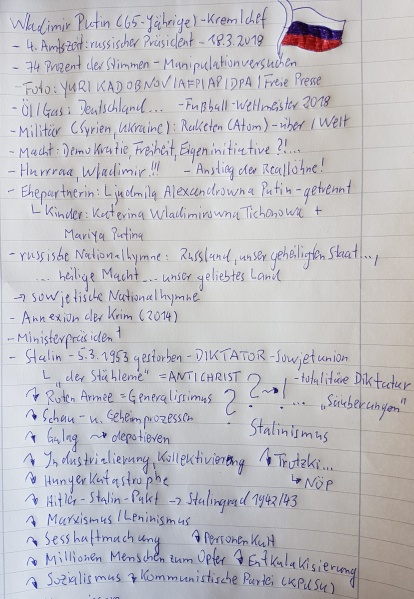 Wladimir Putin (65-jährige) - Kremlchef
- 4. Amtszeit: russischer Präsident - 18.3.2018
- 74 Prozent der Stimmen - Manipulationversuchen
- Foto: YURI KADOBNOV / AFP / AP / DPA / Freie Presse
- Öl/Gas: Deutschland... - Fußball-Weltmeister 2018
- Militär (Syrien, Ukraine): Raketen (Atom) - über / Welt
- Macht: Demokratie, Freiheit, Eigeninitiative ?!...
- Hurrraa, Wladimir!!! - Anstieg der Reallöhne!
- Ehepartnerin: Ljudmila Alexandrowna Putin - getrennt
Kinder: Katerina Wladimirowna Tichonowa +
Mariya Putina
- russishe Nationalhymne: Russland, unser geheiligten Staat...,
... heilige Macht... unser geliebtes Land
→ sowjetische Nationalhymne
- Annexion der Krim (2014)
- Ministerpräsident
- Stalin - 5.3.1953 gestorben - DIKTATOR - Sowjetunion
"der Stählerne" = ANTICHRIST ? ! - totalitäre Diktatur
Roten Armee = Generalissimus ? ... "Säuberungen"
Schau- u. Geheimprozessen
Stalinismus
Gulag → depotieren
Industrialierung, Kollektivierung Trutzki...
Hungerkatastrophe → NÖP
Hitler-Stalin-Pakt → Stalingrad 1942/43
Marxismus/Leninismus
Sesshaftmachung Personenkult
Millionen Menschen zum Opfer Entkulakisierung
Sozialismus Kommunistische Partei (KPdSU)